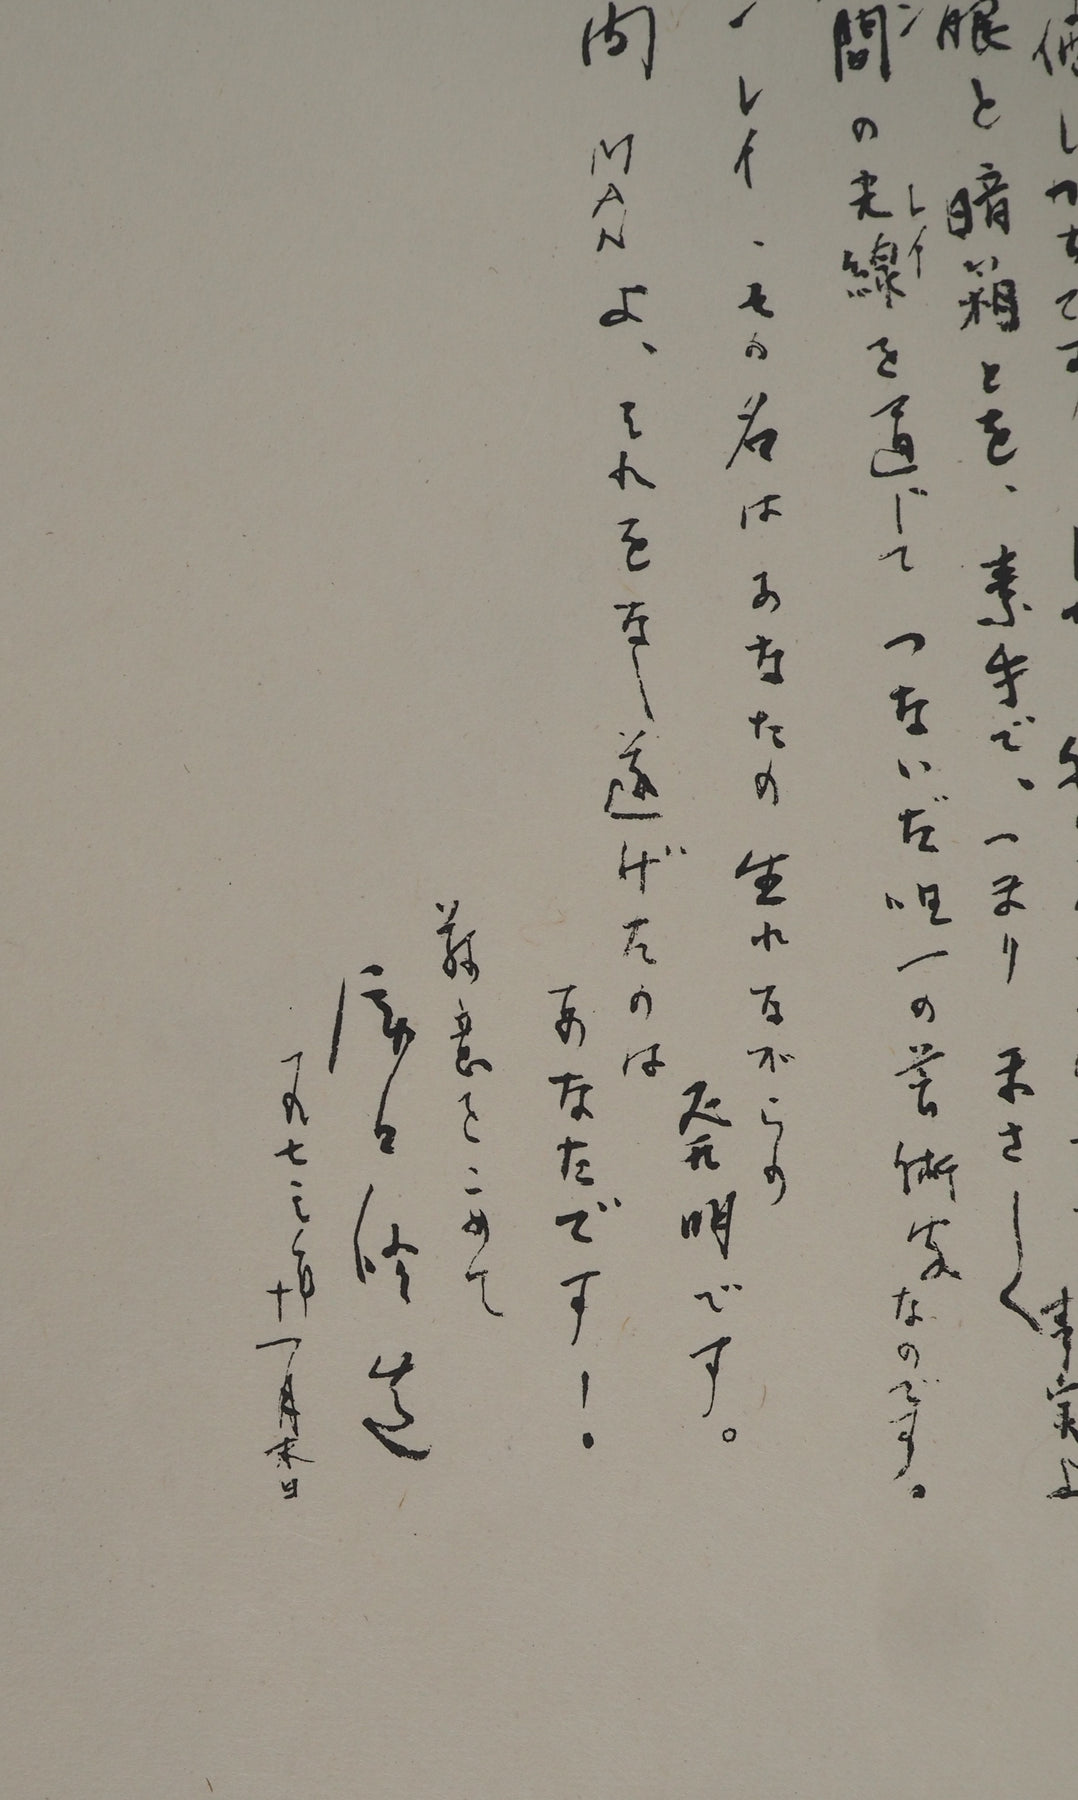 眼と暗箱とを、素手で、つまりまさしく
間の光線を通じてつないだ唯一の芸術家なのです。
ン
レイ
レイ、その名はあなたの生れながらの
発明です。
間 MAN よ、それをなし遂げたのは
あなたです!
敬意をこめて
瀧口修造
一九七三年十一月末日